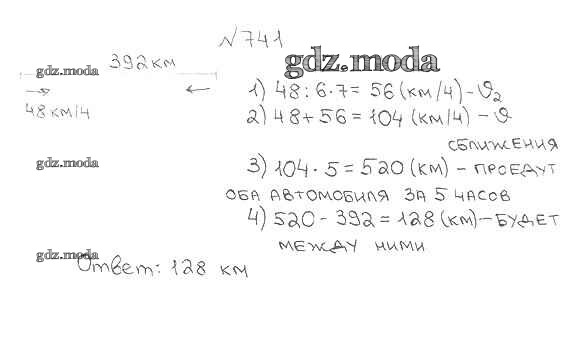 №741
gdz.moda
392 км
gdz.moda
48 км/ч
1) 48 : 6 · 7 = 56 (км/ч) - ϑ₂
2) 48 + 56 = 104 (км/ч) - ϑ
сближения
gdz.moda
3) 104 · 5 = 520 (км) - проедут
оба автомобиля за 5 часов
4) 520 - 392 = 128 (км) - будет
между ними
gdz.moda
Ответ: 128 км